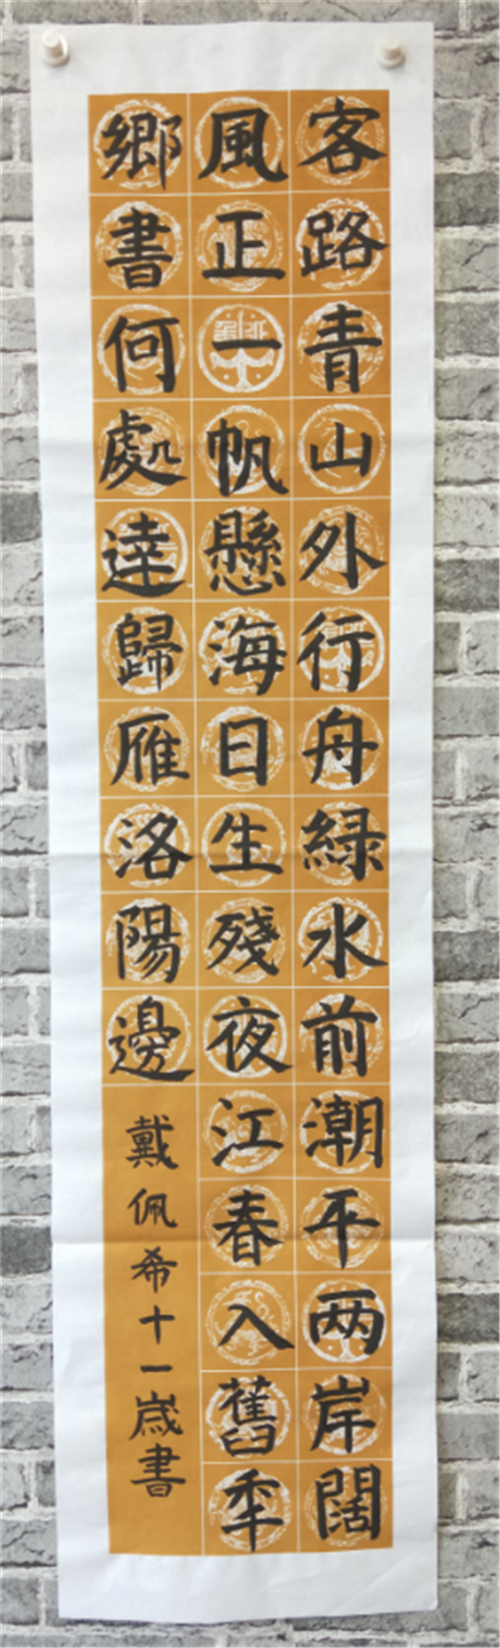 客路青山外行舟緑水前潮平两岸闊
風正一帆懸海日生殘夜江春入舊秊
鄉書何處達歸雁洛陽邊
戴佩希十一歲書